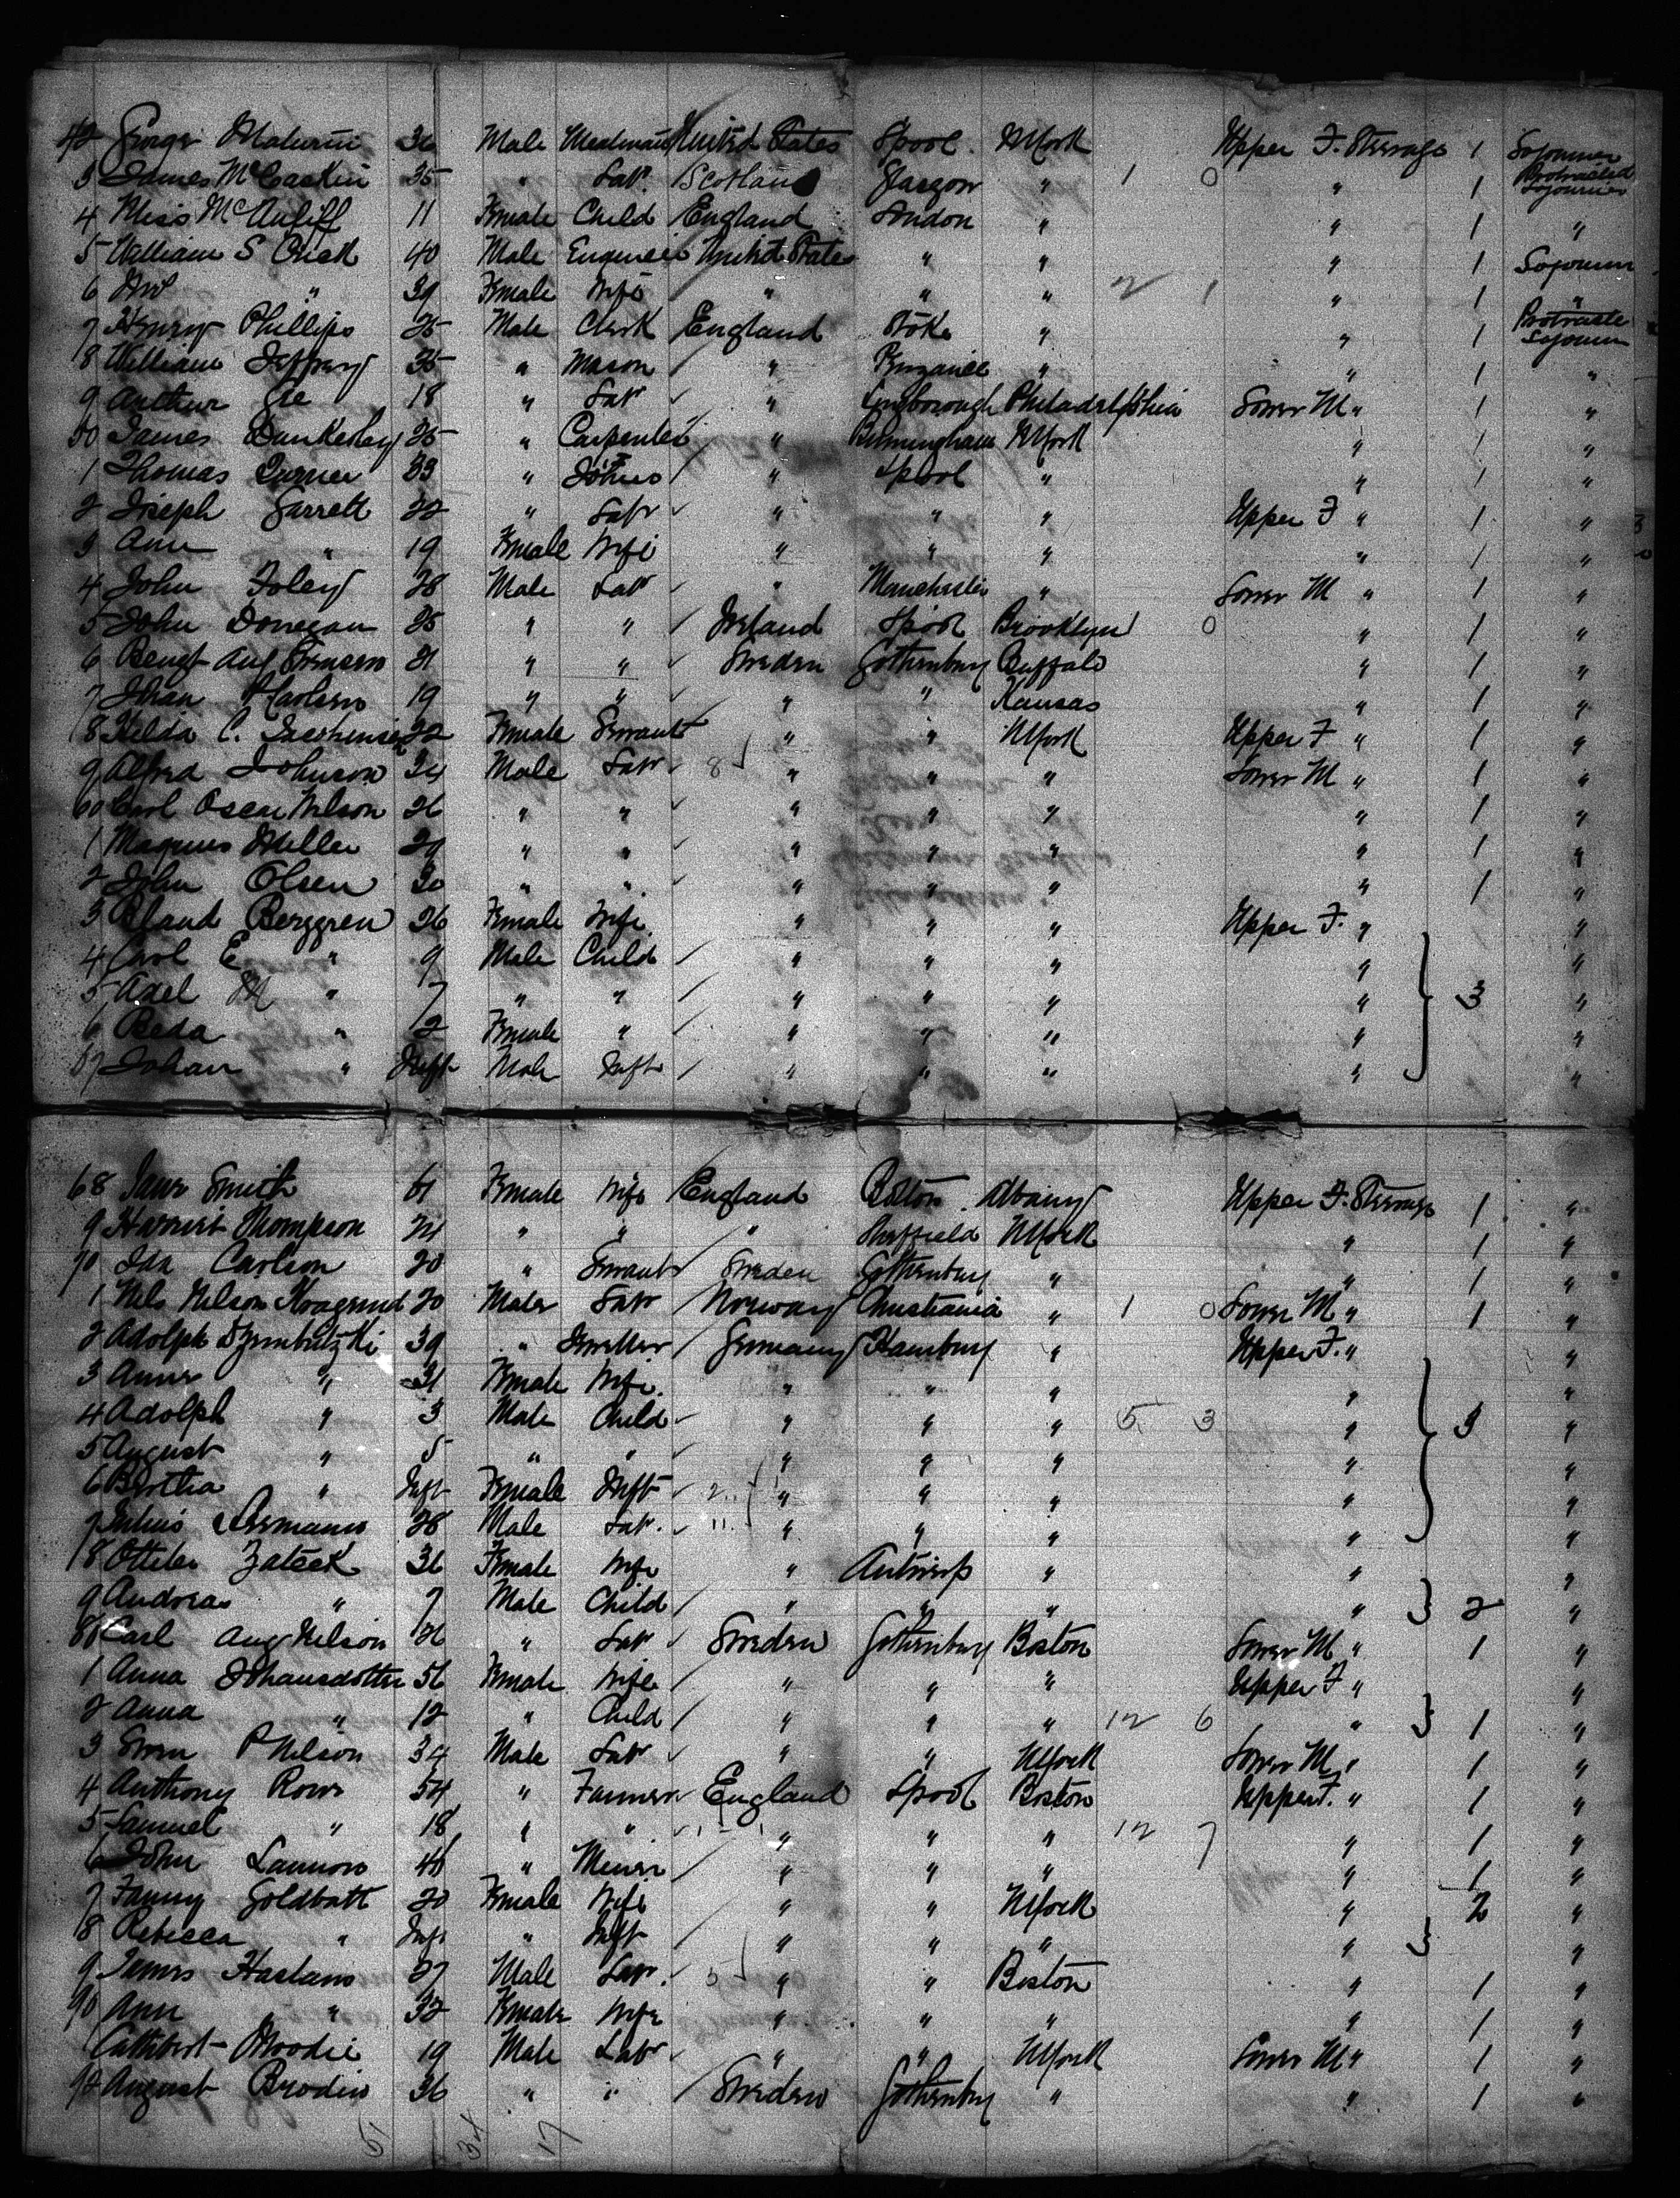 42 George 36 Male United States Lpool NYork Upper F. Steerage 1 Sojourner
3 James McCaskin 35 " Labr Scotland Glasgow " 1 0 " 1 Protracted Sojourner
4 Miss McAuliff 11 Female Child England London " " 1 "
5 William S 40 Male Engineer United States " " " 1 Sojourn
6 Mrs " 39 Female Wife " " " 2 1 " 1 "
7 Henry Phillips 25 Male Clerk England Stoke " " 1 Protracte Sojourn
8 William Jeffrey 35 " Mason " Penzance " " 1 "
9 Arthur Gee 18 " Labr " Philadelphia Lower M " 1 "
50 James Dunkerley 25 " Carpenter " Birmingham NYork " 1 "
1 Thomas Turner 33 " " Lpool " " 1 "
2 Joseph Garrett 22 " Labr " " " Upper F " 1 "
3 Ann " 19 Female Wife " " " " 1 "
4 John Foley 28 Male Labr " Manchester " Lower M " 1 "
5 John Donegan 25 " " Ireland Lpool Brooklyn 0 " 1 "
6 Bengt Aug 21 " " Sweden Gothenburg Buffalo " 1 "
7 Johan Karlson 19 " " " " Kansas " 1 "
8 Hilda C. 22 Female Servant " " NYork Upper F " 1 "
9 Alfred Johnson 24 Male Labr 8 " " " Lower M " 1 "
60 Carl Oscar Nelson 26 " " " " " " 1 "
1 Magnus Miller 29 " " " " " " 1 "
2 John Olsen 30 " " " " " " 1 "
3 Berggren 26 Female Wife " " " Upper F. " "
4 Carl E " 9 Male Child " " " " "
5 Axel M " 7 " " " " " " 3 "
6 Beda " 2 Female " " " " " "
67 Johan " Inft Male Inft " " " " "
68 Jane Smith 61 Female Wife England Bolton Albany Upper F. Steerage 1 "
9 Harriet Thompson 21 " " " Sheffield NYork " 1 "
70 Ida Carlson 20 " Servant Sweden Gothenburg " " 1 "
1 Nels Nelson 20 Male Labr Norway Christiania " 1 0 Lower M " 1 "
2 Adolph 39 " Jeweller Germany Hamburg " Upper F. " "
3 Anna " 31 Female Wife " " " " "
4 Adolph " 3 Male Child " " " 5 3 " 5 "
5 August " 5 " " " " " " "
6 Bertha " Inft Female Inft 2 " " " " "
7 Julius 28 Male Labr. 11 " " " " "
78 Zateck 36 Female Wife " Antwerp " " "
9 Andreas " 7 Male Child " " " " 2 "
80 Carl Aug Nelson 26 " Labr Sweden Gothenburg Boston Lower M " 1 "
1 Anna Johansdotter 56 Female Wife " " " Upper F " "
2 Anna " 12 " Child " " " 12 6 " 1 "
3 Sven P Nelson 34 Male Labr " " NYork Lower M " 1 "
4 Anthony Rowe 54 " Farmer England Lpool Boston Upper F. " 1 "
5 Samuel " 18 " " " " " 12 7 " 1 "
6 John Lannon 46 " Miner " " " " 1 "
7 Fanny Goldbatt 20 Female Wife " " NYork " 2 "
8 Rebecca " Inft " Inft " " " " "
9 James Haslam 27 Male Labr. 5 " " Boston " 1 "
90 Ann " 32 Female Wife " " " " 1 "
1 Cuthbert Moodie 19 Male Labr " " NYork Lower M " 1 "
92 August Brodin 36 " " Sweden Gothenburg " " 1 "
51 34 17